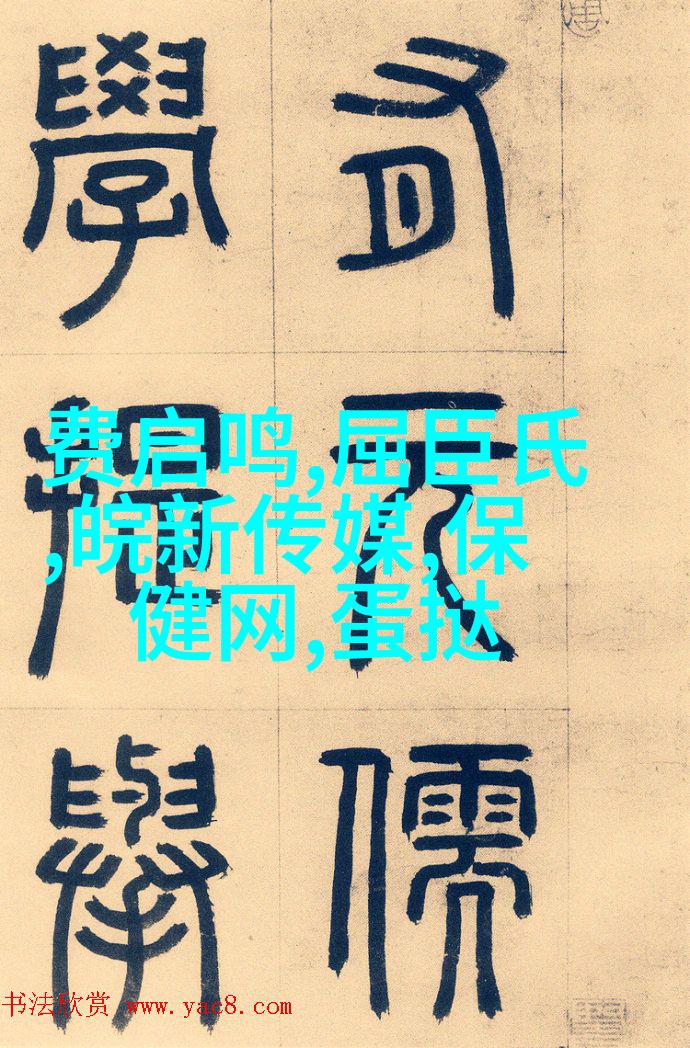 有元儒
學提舉
费启鸣,屈臣氏
,皖新传媒,保
健网,蛋挞
书法欣赏 www.yac8.com